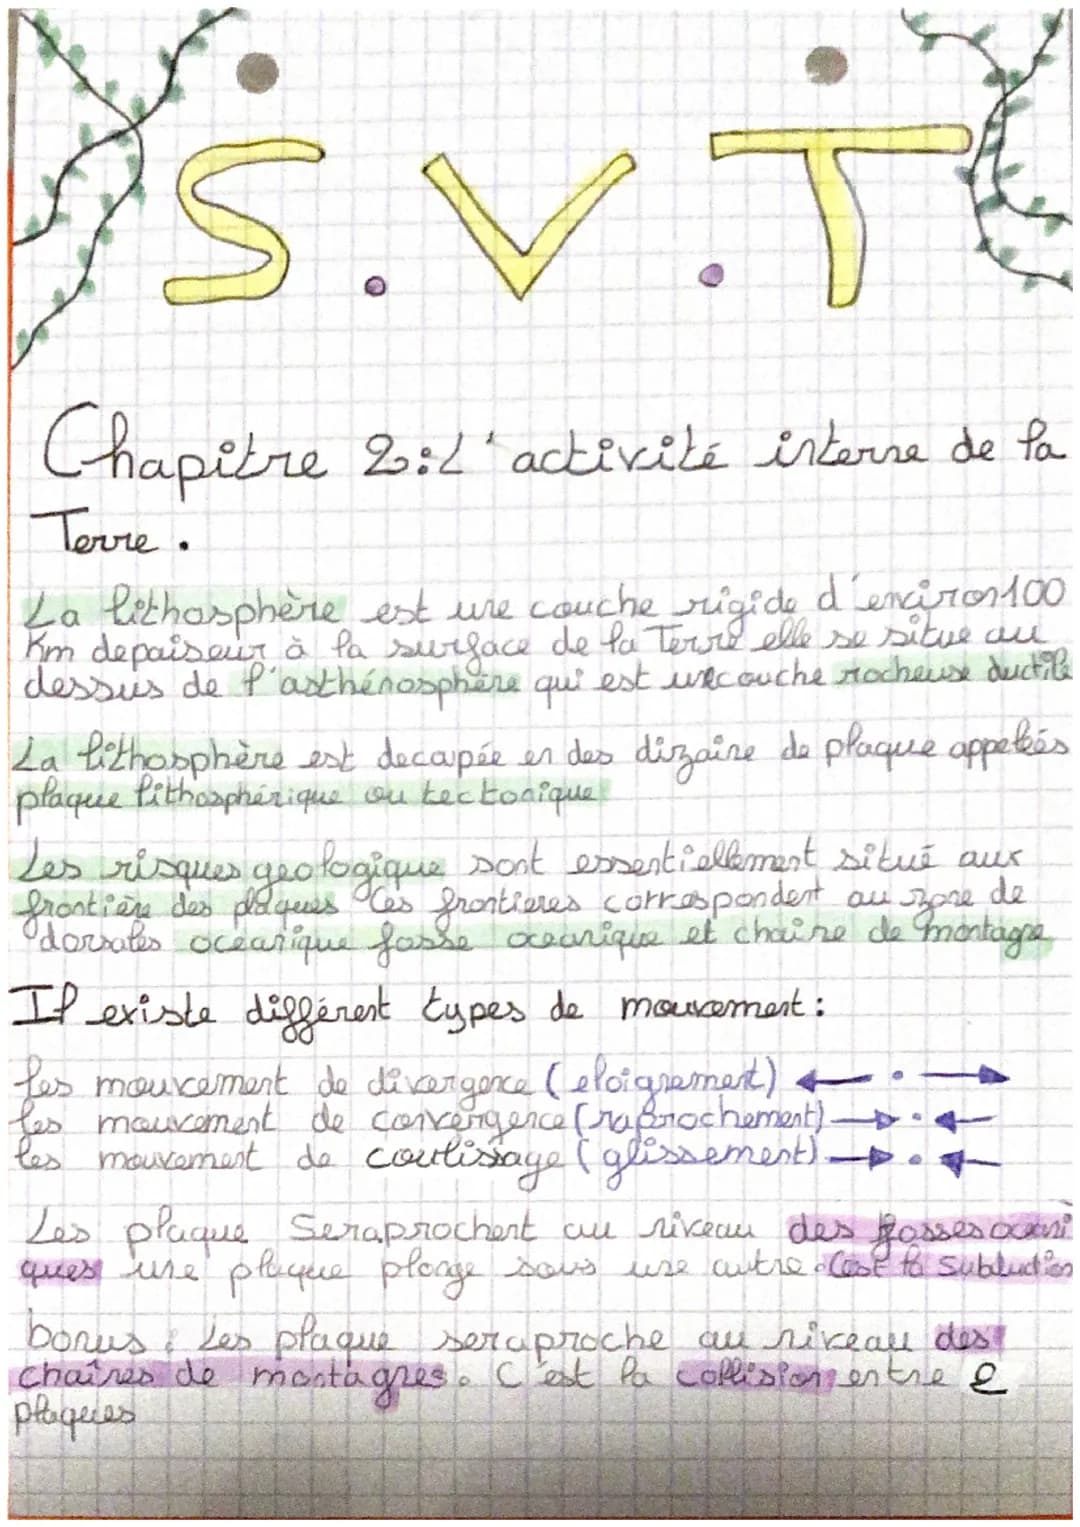 S.V.T
Chapitre 2:L'activité interne de la
Terre.
La lithosphère est une couche rigide d'environ 100
Km depaiseur à la surface de la Terre elle se situe au
dessus de l'asthénosphère qui est une couche rocheuse ductile
La lithosphère est decoupée en des dizaine de plaque appelés
plaque lithosphérique ou tectonique
Les risques geologique sont essentiellement situé aux
frontière des plaques Ces frontieres correspondent au zone de
dorsales océanique fosse oceanique et chaine de montagne
Il existe différent types de mouvement:
les mouvement de divergence (eloignement) ← • →
les mouvement de convergence (raprochement) → • ←
les mouvement de coulissage (glissement) → • ←
Les plaque Seraprochent au niveau des fosses oceani
ques une plaque plonge sous une autre. C'est la Subduction
bonus : Les plaque seraproche au niveau des
chaînes de montagnes. C'est la collision entre 2
plaques